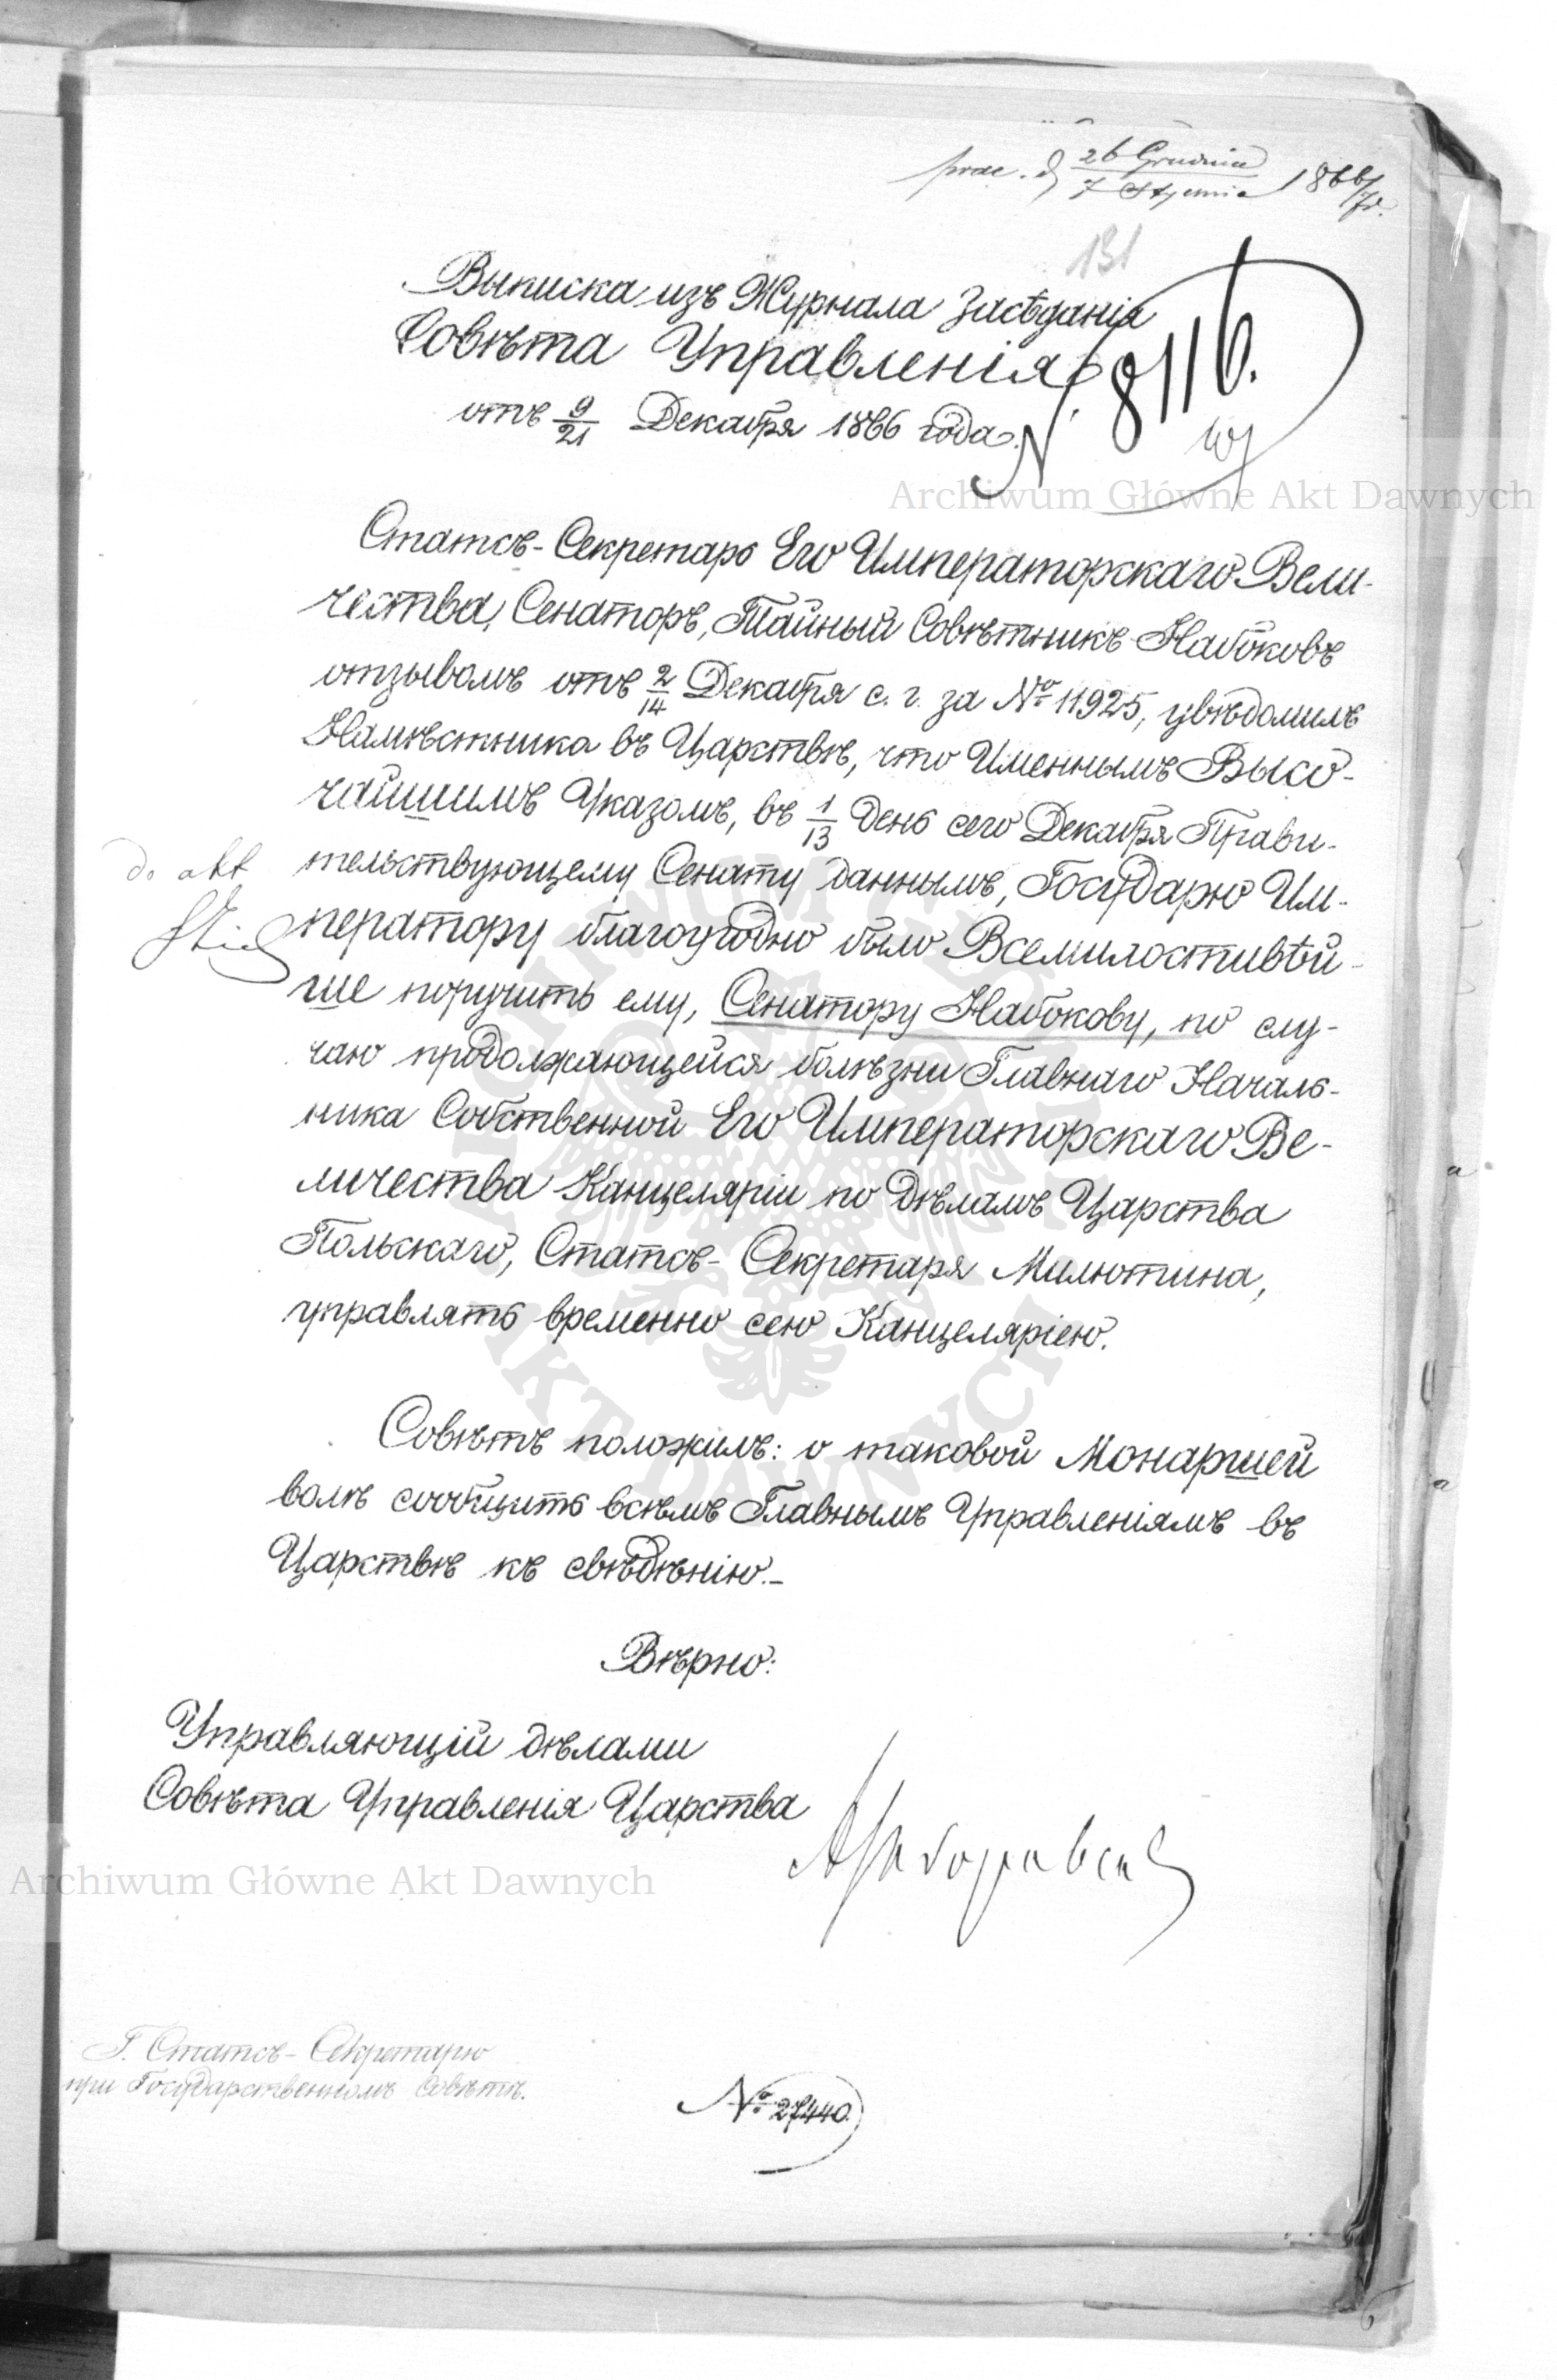 prae. d. 26 Grudnia / 7 Stycznia 1866/7 r.
131
Выписка изъ Журнала Засѣданія
Совѣта Управленія
отъ 9/21 Декабря 1866 года.
N. 8116.
Archiwum Główne Akt Dawnych
Статсъ-Секретарь Его Императорскаго Вели-
чества, Сенаторъ, Тайный Совѣтникъ Набоковъ
отзывомъ отъ 2/14 Декабря с. г. за № 11925, увѣдомилъ
Намѣстника въ Царствѣ, что Именнымъ Высо-
чайшимъ Указомъ, въ 1/13 день сего Декабря Прави-
тельствующему Сенату даннымъ, Государю Им-
ператору благоугодно было Всемилостивѣй-
ше поручить ему, Сенатору Набокову, по слу-
чаю продолжающейся болѣзни Главнаго Началь-
ника Собственной Его Императорскаго Ве-
личества Канцеляріи по дѣламъ Царства
Польскаго, Статсъ-Секретаря Милютина,
управлять временно сею Канцеляріею.
do akt
Совѣтъ положилъ: о таковой Монаршей
волѣ сообщить всѣмъ Главнымъ Управленіямъ въ
Царствѣ къ свѣдѣнію.-
Вѣрно:
Управляющій дѣлами
Совѣта Управленія Царства
Archiwum Główne Akt Dawnych
Г. Статсъ-Секретарю
при Государственномъ Совѣтѣ.
№ 27440.
ARCHIWUM GŁÓWNE AKT DAWNYCH